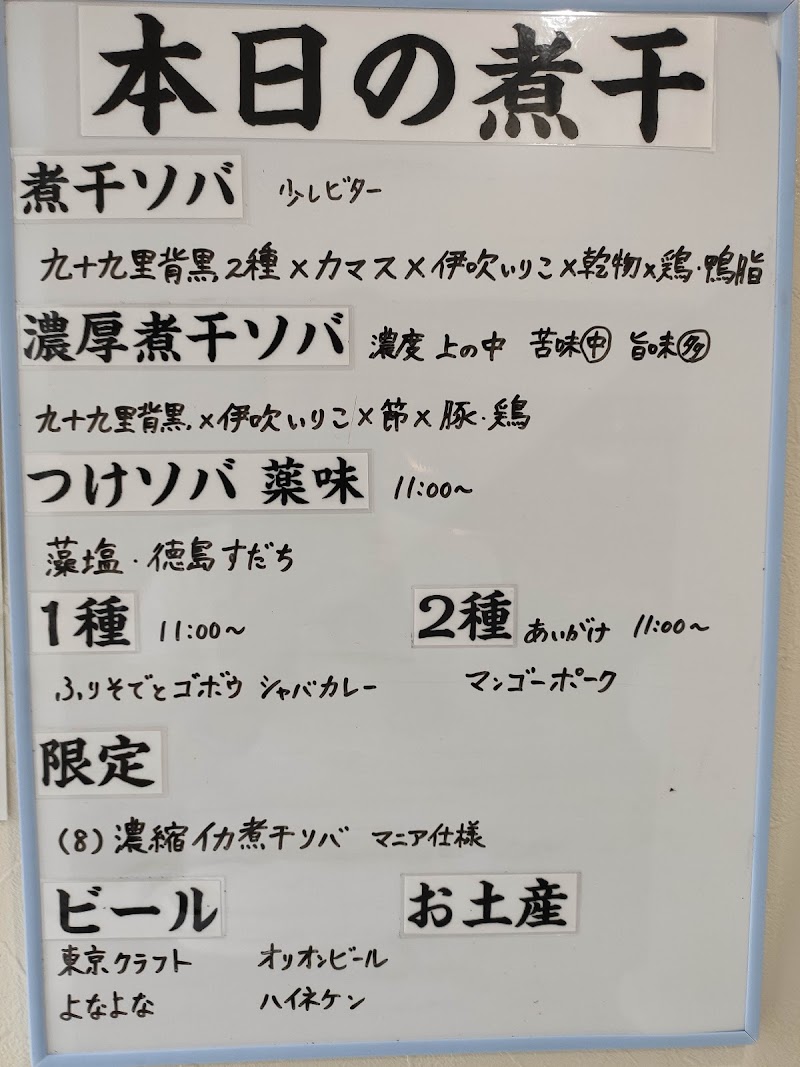 本日の煮干
煮干ソバ 少しビター
九十九里背黒2種×カマス×伊吹いりこ×乾物×鶏・鴨脂
濃厚煮干ソバ 濃度 上の中 苦味㊥ 旨味(多)
九十九里背黒×伊吹いりこ×節×豚・鶏
つけソバ 薬味 11:00~
藻塩・徳島すだち
1種 11:00~ 2種 あいがけ 11:00~
ふりそでとゴボウ シャバカレー マンゴーポーク
限定
(8)濃縮イカ煮干ソバ マニア仕様
ビール お土産
東京クラフト オリオンビール
よなよな ハイネケン